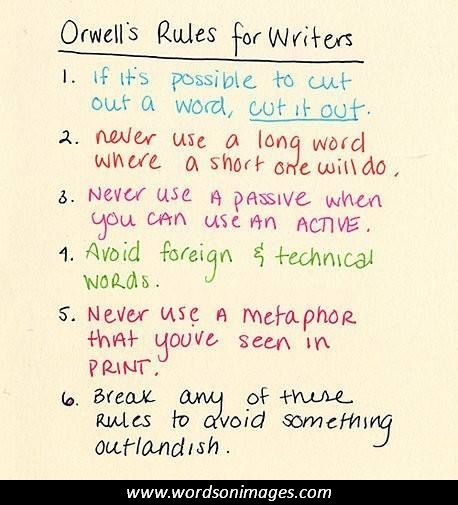 Orwell's Rules for Writers
1. if it's possible to cut
out a word, cut it out.
2. never use a long word
where a short one will do.
3. Never use A PASSIVE when
you CAN use AN ACTIVE.
4. Avoid foreign & technical
words.
5. Never use A metaphor
that youve seen in
PRINT.
6. Break any of these
Rules to avoid something
outlandish.
www.wordsonimages.com